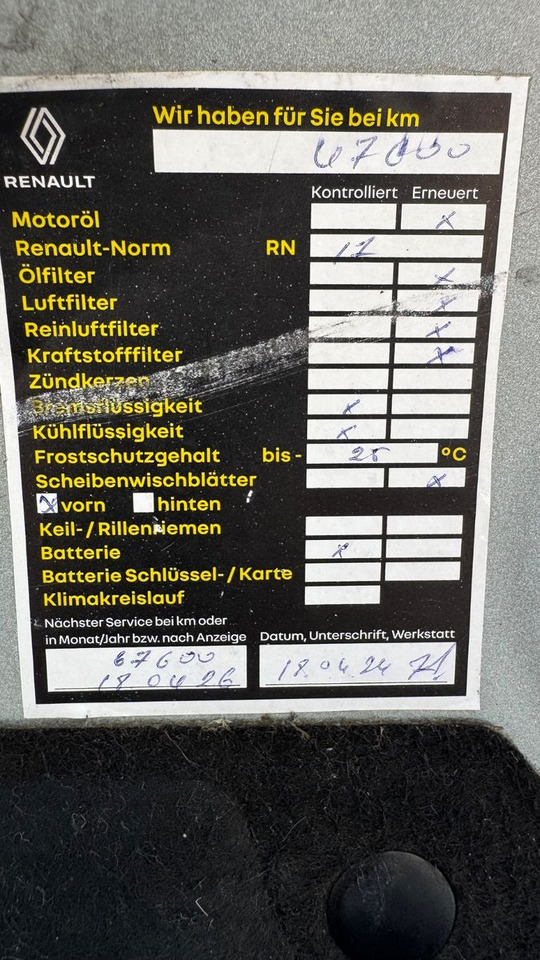 Wir haben für Sie bei km
RENAULT
Kontrolliert Erneuert
Motoröl x
Renault-Norm RN 17
Ölfilter x
Luftfilter x
Reinluftfilter x
Kraftstofffilter x
Zündkerzen
Bremsflüssigkeit x
Kühlflüssigkeit x
Frostschutzgehalt bis - 25 °C
Scheibenwischblätter x
x vorn hinten
Keil-/Rillenriemen
Batterie x
Batterie Schlüssel-/Karte
Klimakreislauf
Nächster Service bei km oder
in Monat/Jahr bzw. nach Anzeige
Datum, Unterschrift, Werkstatt
67600
18 04 26
18.04.24